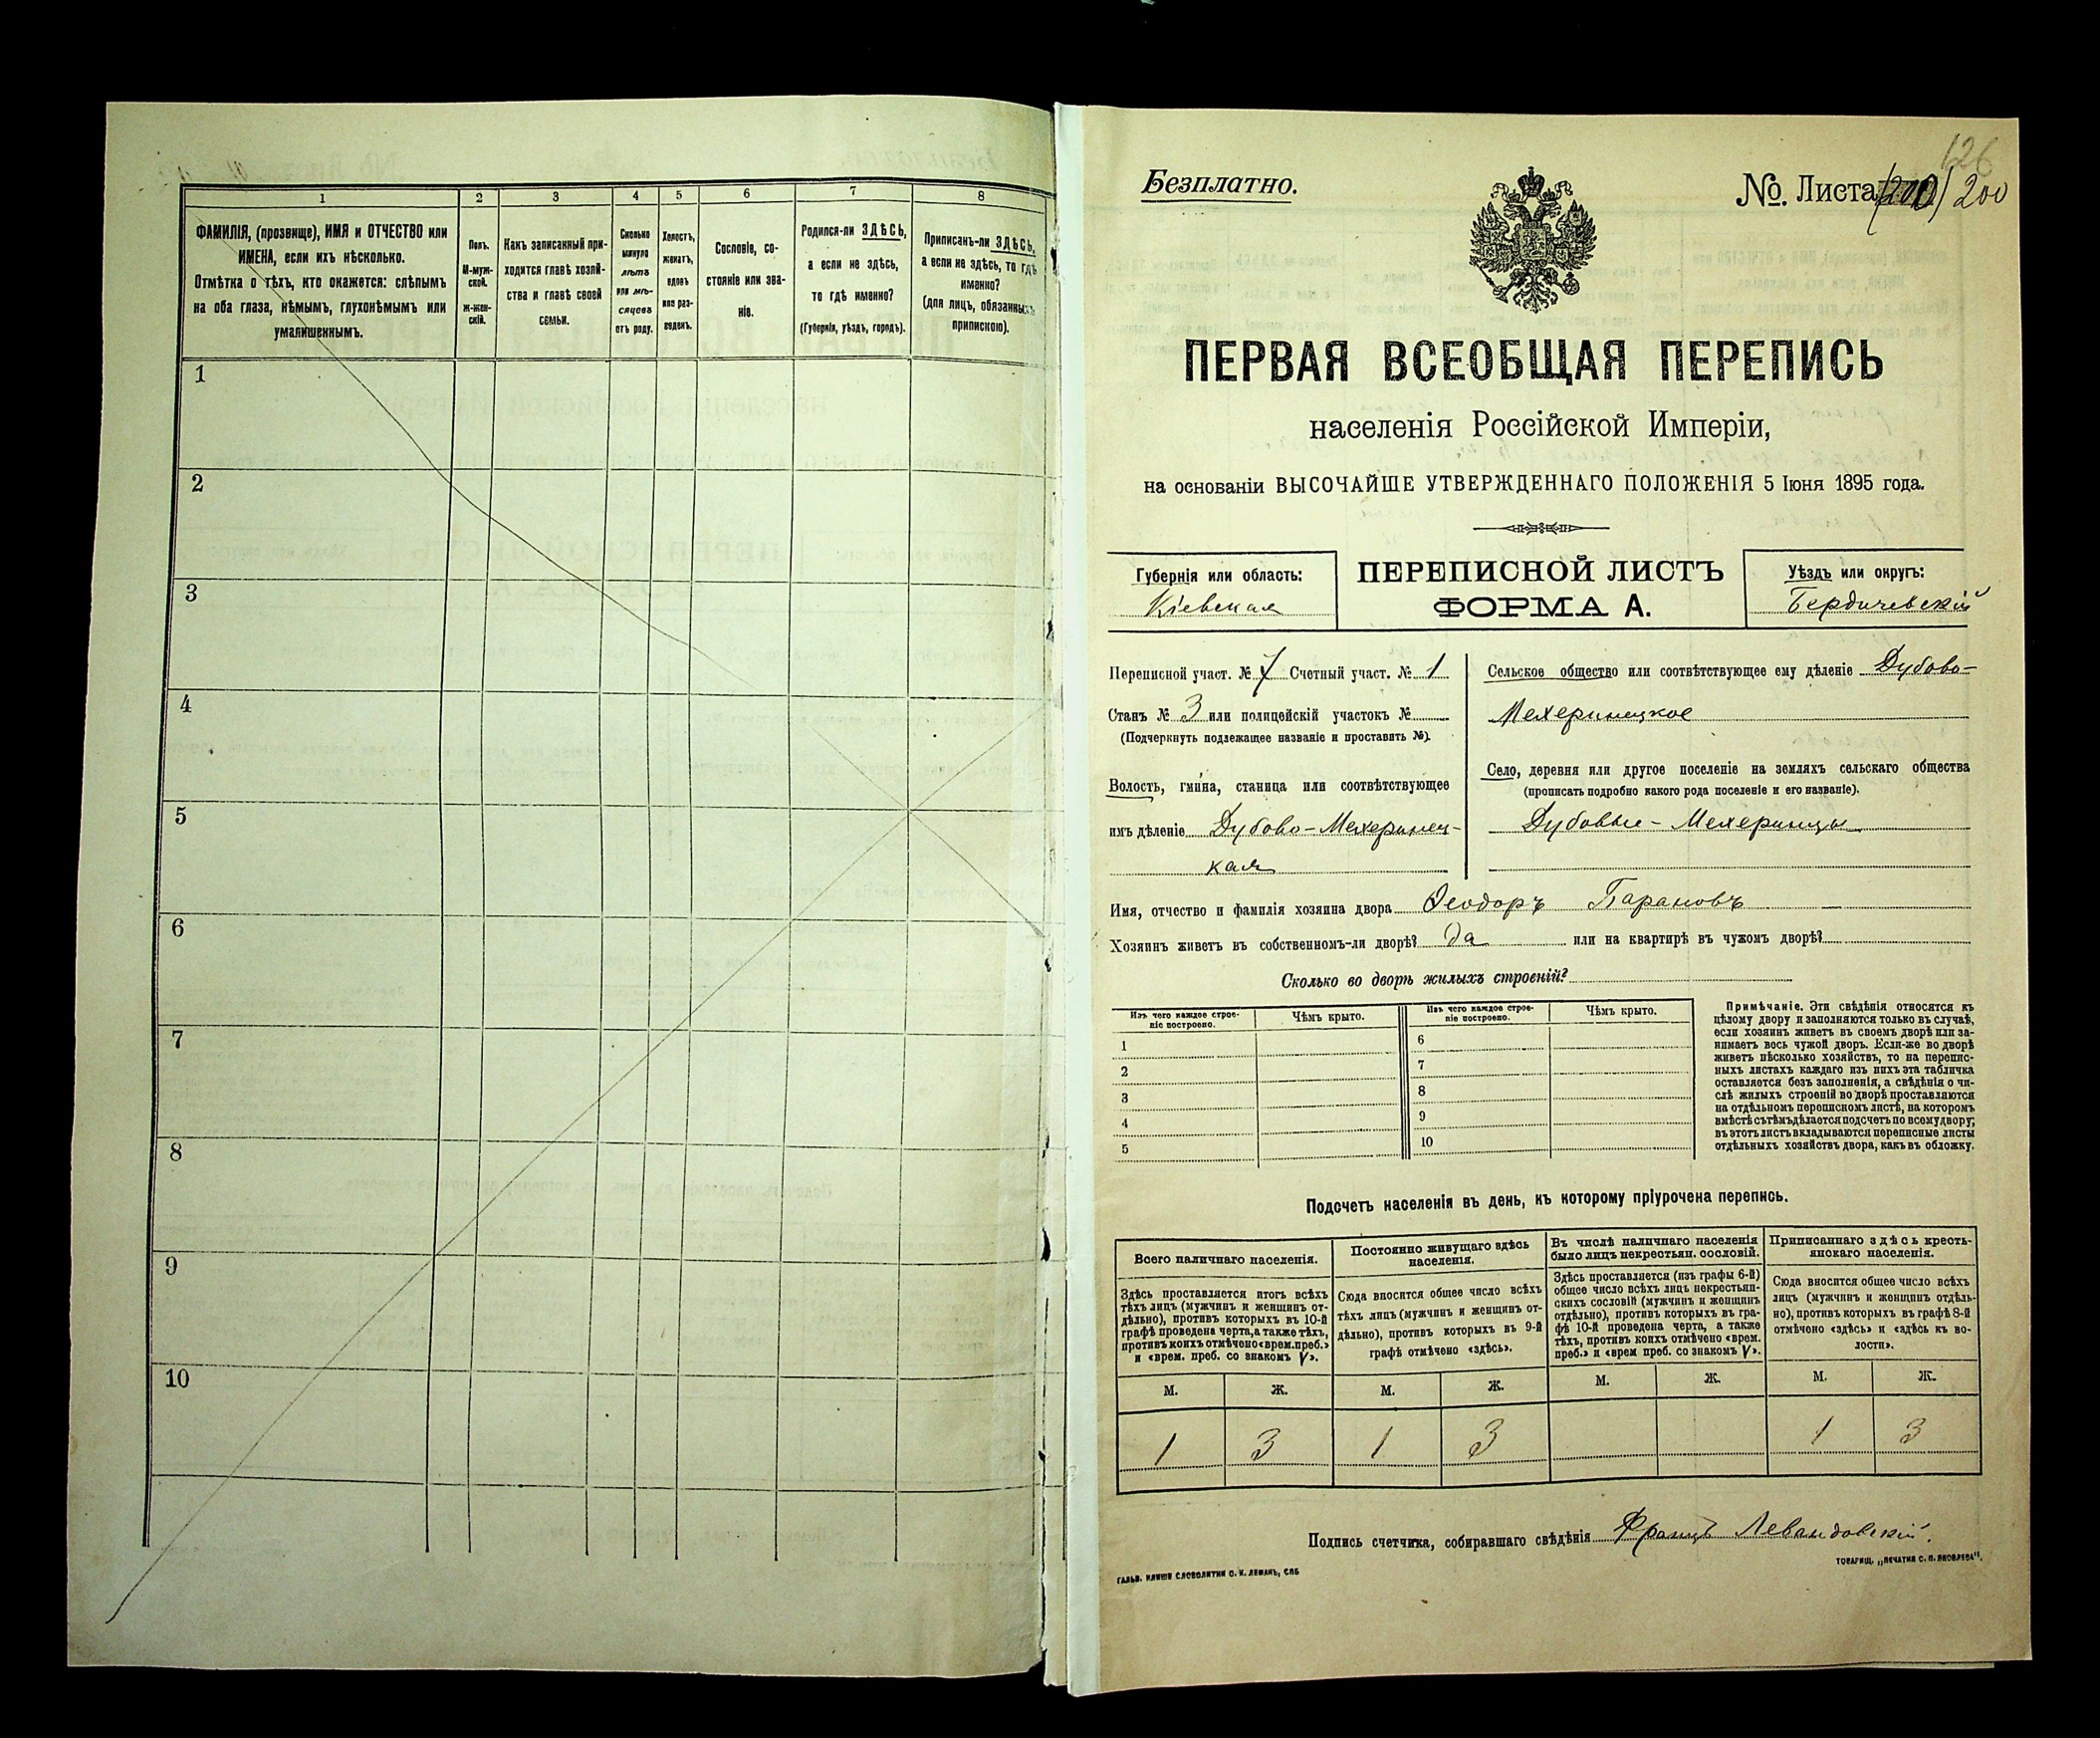 1
2
3
4
5
6
7
8
ФАМИЛІЯ, (прозвище), ИМЯ и ОТЧЕСТВО или
ИМЕНА, если ихъ нѣсколько.
Отмѣтка о тѣхъ, кто окажется: слѣпымъ
на оба глаза, нѣмымъ, глухонѣмымъ или
умалишеннымъ.
Полъ.
М-муж-
ской.
Ж-жен-
скій.
Какъ записанный при-
ходится главѣ хозяй-
ства и главѣ своей
семьи.
Сколько
минуло
лѣтъ
или мѣ-
сяцевъ
отъ роду.
Холостъ,
женатъ,
вдовъ
или раз-
веденъ.
Сословіе, со-
стояніе или зва-
ніе.
Родился-ли ЗДѢСЬ,
а если не здѣсь,
то гдѣ именно?
(Губернія, уѣздъ, городъ).
Приписанъ-ли ЗДѢСЬ,
а если не здѣсь, то гдѣ
именно?
(для лицъ, обязанныхъ
припискою).
1
2
3
4
5
6
7
8
9
10
126
Безплатно.
№. Листа (200) 200
ПЕРВАЯ ВСЕОБЩАЯ ПЕРЕПИСЬ
населенія Россійской Имперіи,
на основаніи ВЫСОЧАЙШЕ УТВЕРЖДЕННАГО ПОЛОЖЕНІЯ 5 Іюня 1895 года.
Губернія или область:
Кіевская
ПЕРЕПИСНОЙ ЛИСТЪ
ФОРМА А.
Уѣздъ или округъ:
Бердичевскій
Переписной участ. № 7 Счетный участ. № 1
Станъ № 3 или полицейскій участокъ №
(Подчеркнуть подлежащее названіе и проставить №).
Волость, гмина, станица или соотвѣтствующее
имъ дѣленіе Дубово-Мехеринец-
кая
Сельское общество или соотвѣтствующее ему дѣленіе Дубово-
Мехеринецкое
Село, деревня или другое поселеніе на земляхъ сельскаго общества
(прописать подробно какого рода поселеніе и его названіе).
Дубовые-Мехеринцы
Имя, отчество и фамилія хозяина двора Ѳеодоръ Барановъ
Хозяинъ живетъ въ собственномъ-ли дворѣ? да или на квартирѣ въ чужомъ дворѣ?
Сколько во дворѣ жилыхъ строеній?
Изъ чего каждое строе-
ніе построено.
Чѣмъ крыто.
Изъ чего каждое строе-
ніе построено.
Чѣмъ крыто.
1
2
3
4
5
6
7
8
9
10
Примѣчаніе. Эти свѣдѣнія относятся къ
цѣлому двору и заполняются только въ случаѣ,
если хозяинъ живетъ въ своемъ дворѣ или за-
нимаетъ весь чужой дворъ. Если-же во дворѣ
живетъ нѣсколько хозяйствъ, то на перепис-
ныхъ листахъ каждаго изъ нихъ эта табличка
оставляется безъ заполненія, а свѣдѣнія о чи-
слѣ жилыхъ строеній во дворѣ проставляются
на отдѣльномъ переписномъ листѣ, на которомъ
вмѣстѣ съ тѣмъ дѣлается подсчетъ по всему двору;
въ этотъ листъ вкладываются переписные листы
отдѣльныхъ хозяйствъ двора, какъ въ обложку.
Подсчетъ населенія въ день, къ которому пріурочена перепись.
Всего наличнаго населенія.
Здѣсь проставляется итогъ всѣхъ
тѣхъ лицъ (мужчинъ и женщинъ от-
дѣльно), противъ которыхъ въ 10-й
графѣ проведена черта, а также тѣхъ,
противъ коихъ отмѣчено «врем. преб.»
и «врем. преб. со знакомъ V».
Постоянно живущаго здѣсь
населенія.
Сюда вносится общее число всѣхъ
тѣхъ лицъ (мужчинъ и женщинъ от-
дѣльно), противъ которыхъ въ 9-й
графѣ отмѣчено «здѣсь».
Въ числѣ наличнаго населенія
было лицъ некрестьян. сословій.
Здѣсь проставляется (изъ графы 6-й)
общее число всѣхъ лицъ некрестьян-
скихъ сословій (мужчинъ и женщинъ
отдѣльно), противъ которыхъ въ гра-
фѣ 10-й проведена черта, а также
тѣхъ, противъ коихъ отмѣчено «врем.
преб.» и «врем преб. со знакомъ V».
Приписаннаго здѣсь кресть-
янскаго населенія.
Сюда вносится общее число всѣхъ
лицъ (мужчинъ и женщинъ отдѣль-
но), противъ которыхъ въ графѣ 8-й
отмѣчено «здѣсь» и «здѣсь къ во-
лости».
М. Ж. М. Ж. М. Ж. М. Ж.
1 3 1 3 1 3
Подпись счетчика, собиравшаго свѣдѣнія Францъ Левандовскій.
ГАЛЬВ. КЛИШЕ СЛОВОЛИТНИ О. И. ЛЕМАНЪ, СПБ
ТОВАРИЩ. „ПЕЧАТНЯ С. П. ЯКОВЛЕВА".